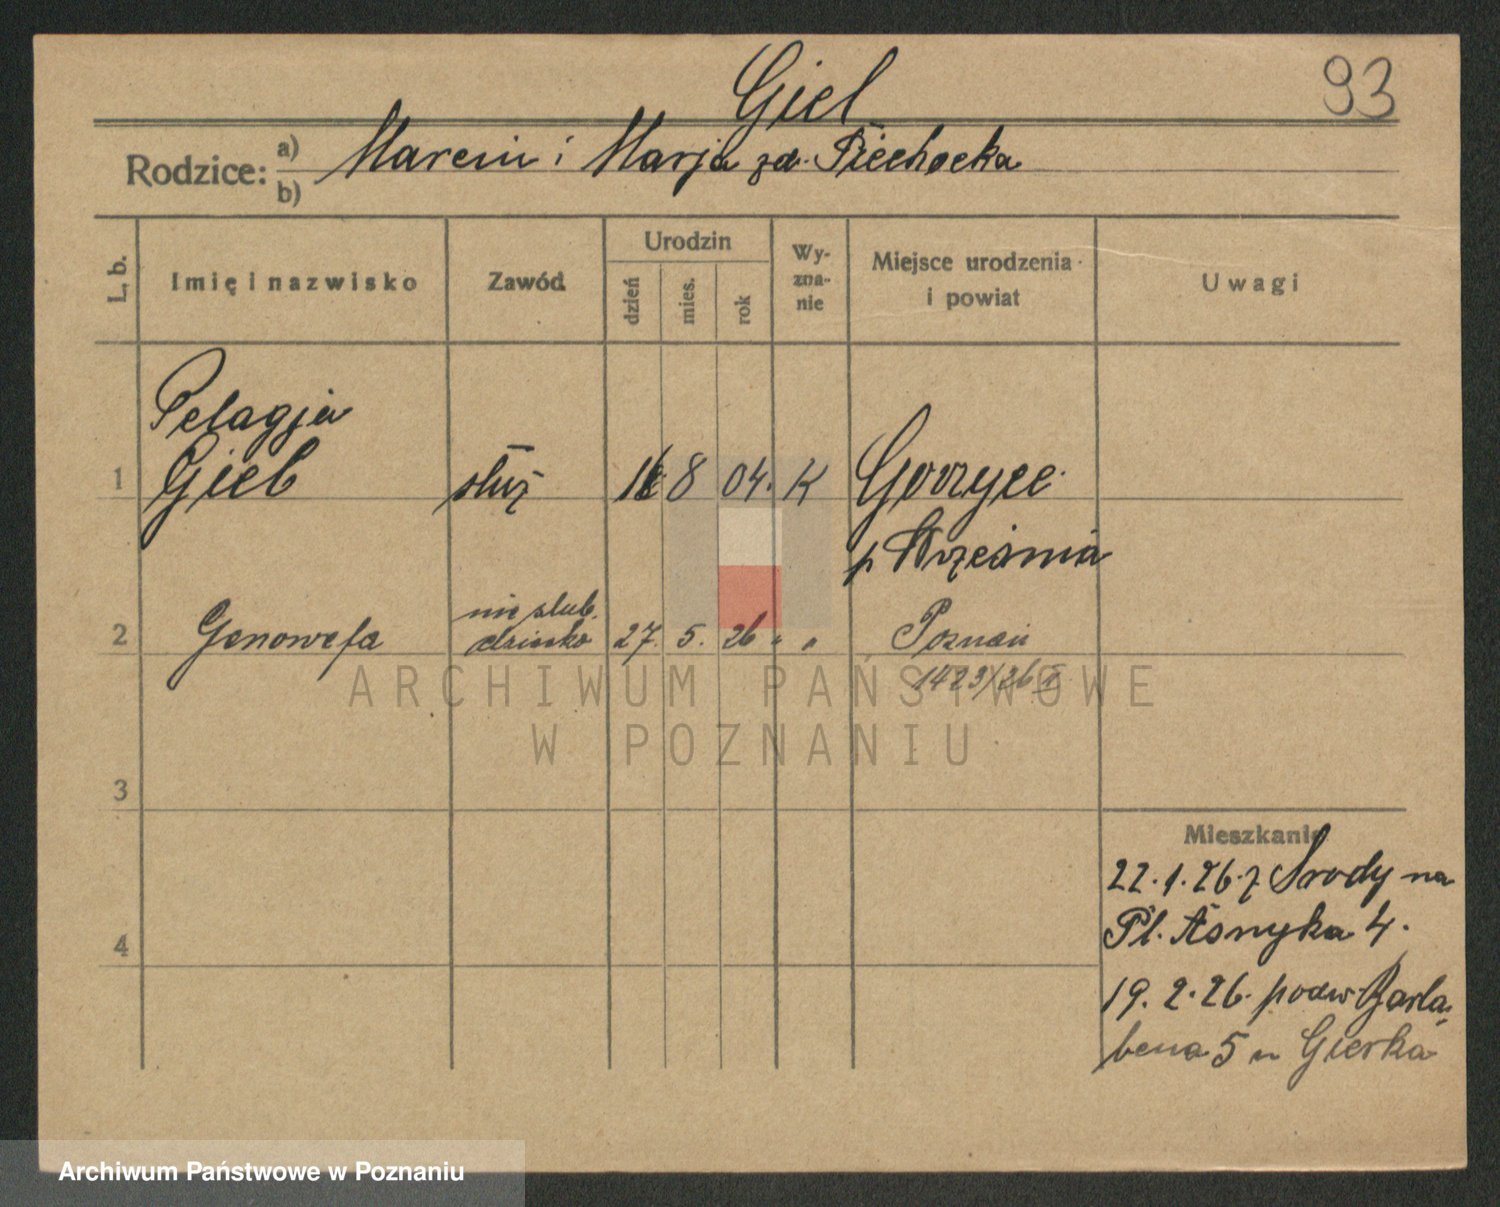 93
Giel
Rodzice: a) b) Marcin i Marja zd. Piechocka
L. b. Imię i nazwisko Zawód Urodzin dzień mies. rok Wy-zna-nie Miejsce urodzenia i powiat Uwagi
Pelagja
1 Giel służ 8 04. K Gorzyce
p Września
nieślub.
2 Genowefa dziecko 27. 5. 26 " " Poznań
1423/26
3
Mieszkanie
22.1.26. z Środy na
Pl. Asnyka 4.
4
19.2.26. podw. Barla-
bena 5 u Gierka
ARCHIWUM PAŃSTWOWE
W POZNANIU
Archiwum Państwowe w Poznaniu